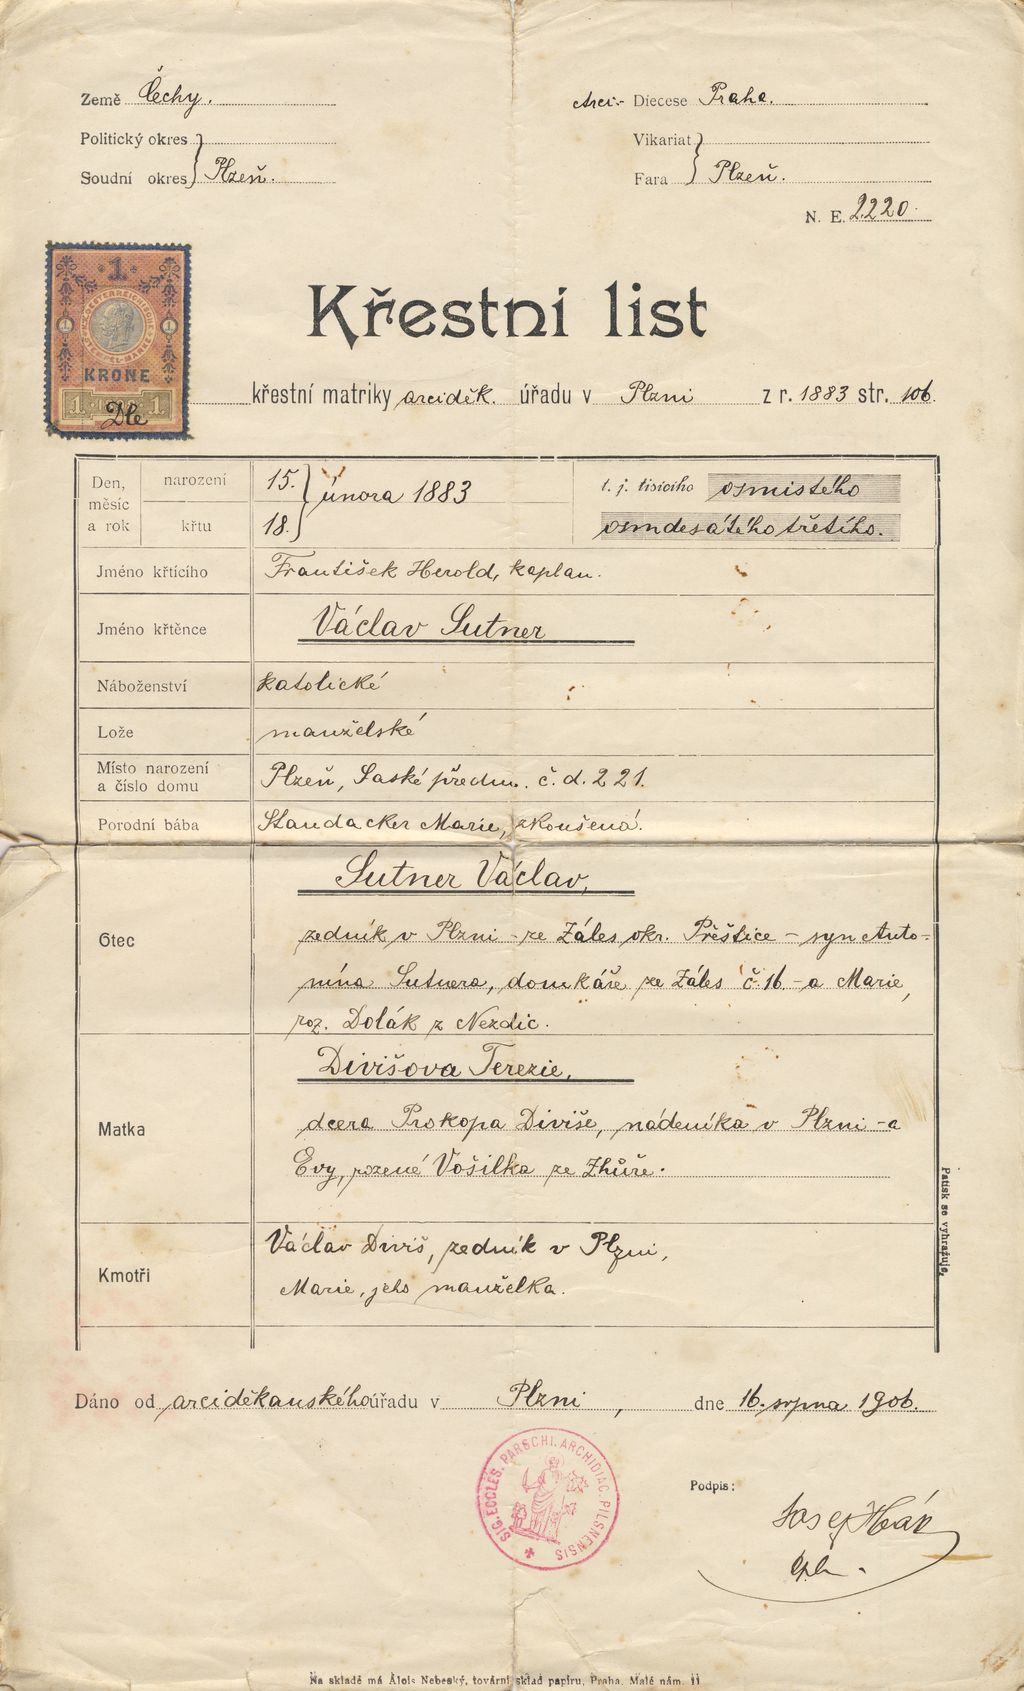 Země Čechy.
Arci- Diecese Praha.
Politický okres
Vikariat
Soudní okres Plzeň.
Fara Plzeň.
N. E. 2220.
1
KRONE
1 1
Dle
Křestní list
křestní matriky arciděk. úřadu v Plzni z r. 1883 str. 106.
Den, měsíc a rok narození 15. února 1883 t. j. tisícího osmistého
křtu 18. osmdesátého třetího.
Jméno křtícího František Herold, kaplan.
Jméno křtěnce Václav Sutner
Náboženství katolické
Lože manželské
Místo narození
a číslo domu Plzeň, Saské předm. č. d. 221.
Porodní bába Standacker Marie, zkoušená.
Sutner Václav,
Otec zedník v Plzni - ze Záles okr. Přeštice - syn Anto-
nína Sutnera, domkáře ze Záles č. 16. - a Marie,
roz. Dolák z Nezdic.
Divišova Terezie,
Matka dcera Prokopa Diviše, nádeníka v Plzni - a
Evy, rozené Vošilka ze Zhůře.
Václav Diviš, zedník v Plzni,
Kmotři Marie, jeho manželka.
Patisk se vyhražuje.
Dáno od arciděkanského úřadu v Plzni, dne 16. srpna 1906.
SIG. ECCLES. PAROCHI. ARCHIDIAC. PILSNENSIS
Podpis:
Josef
Na skladě má Alois Nebeský, tovární sklad papíru, Praha, Malé nám. 11